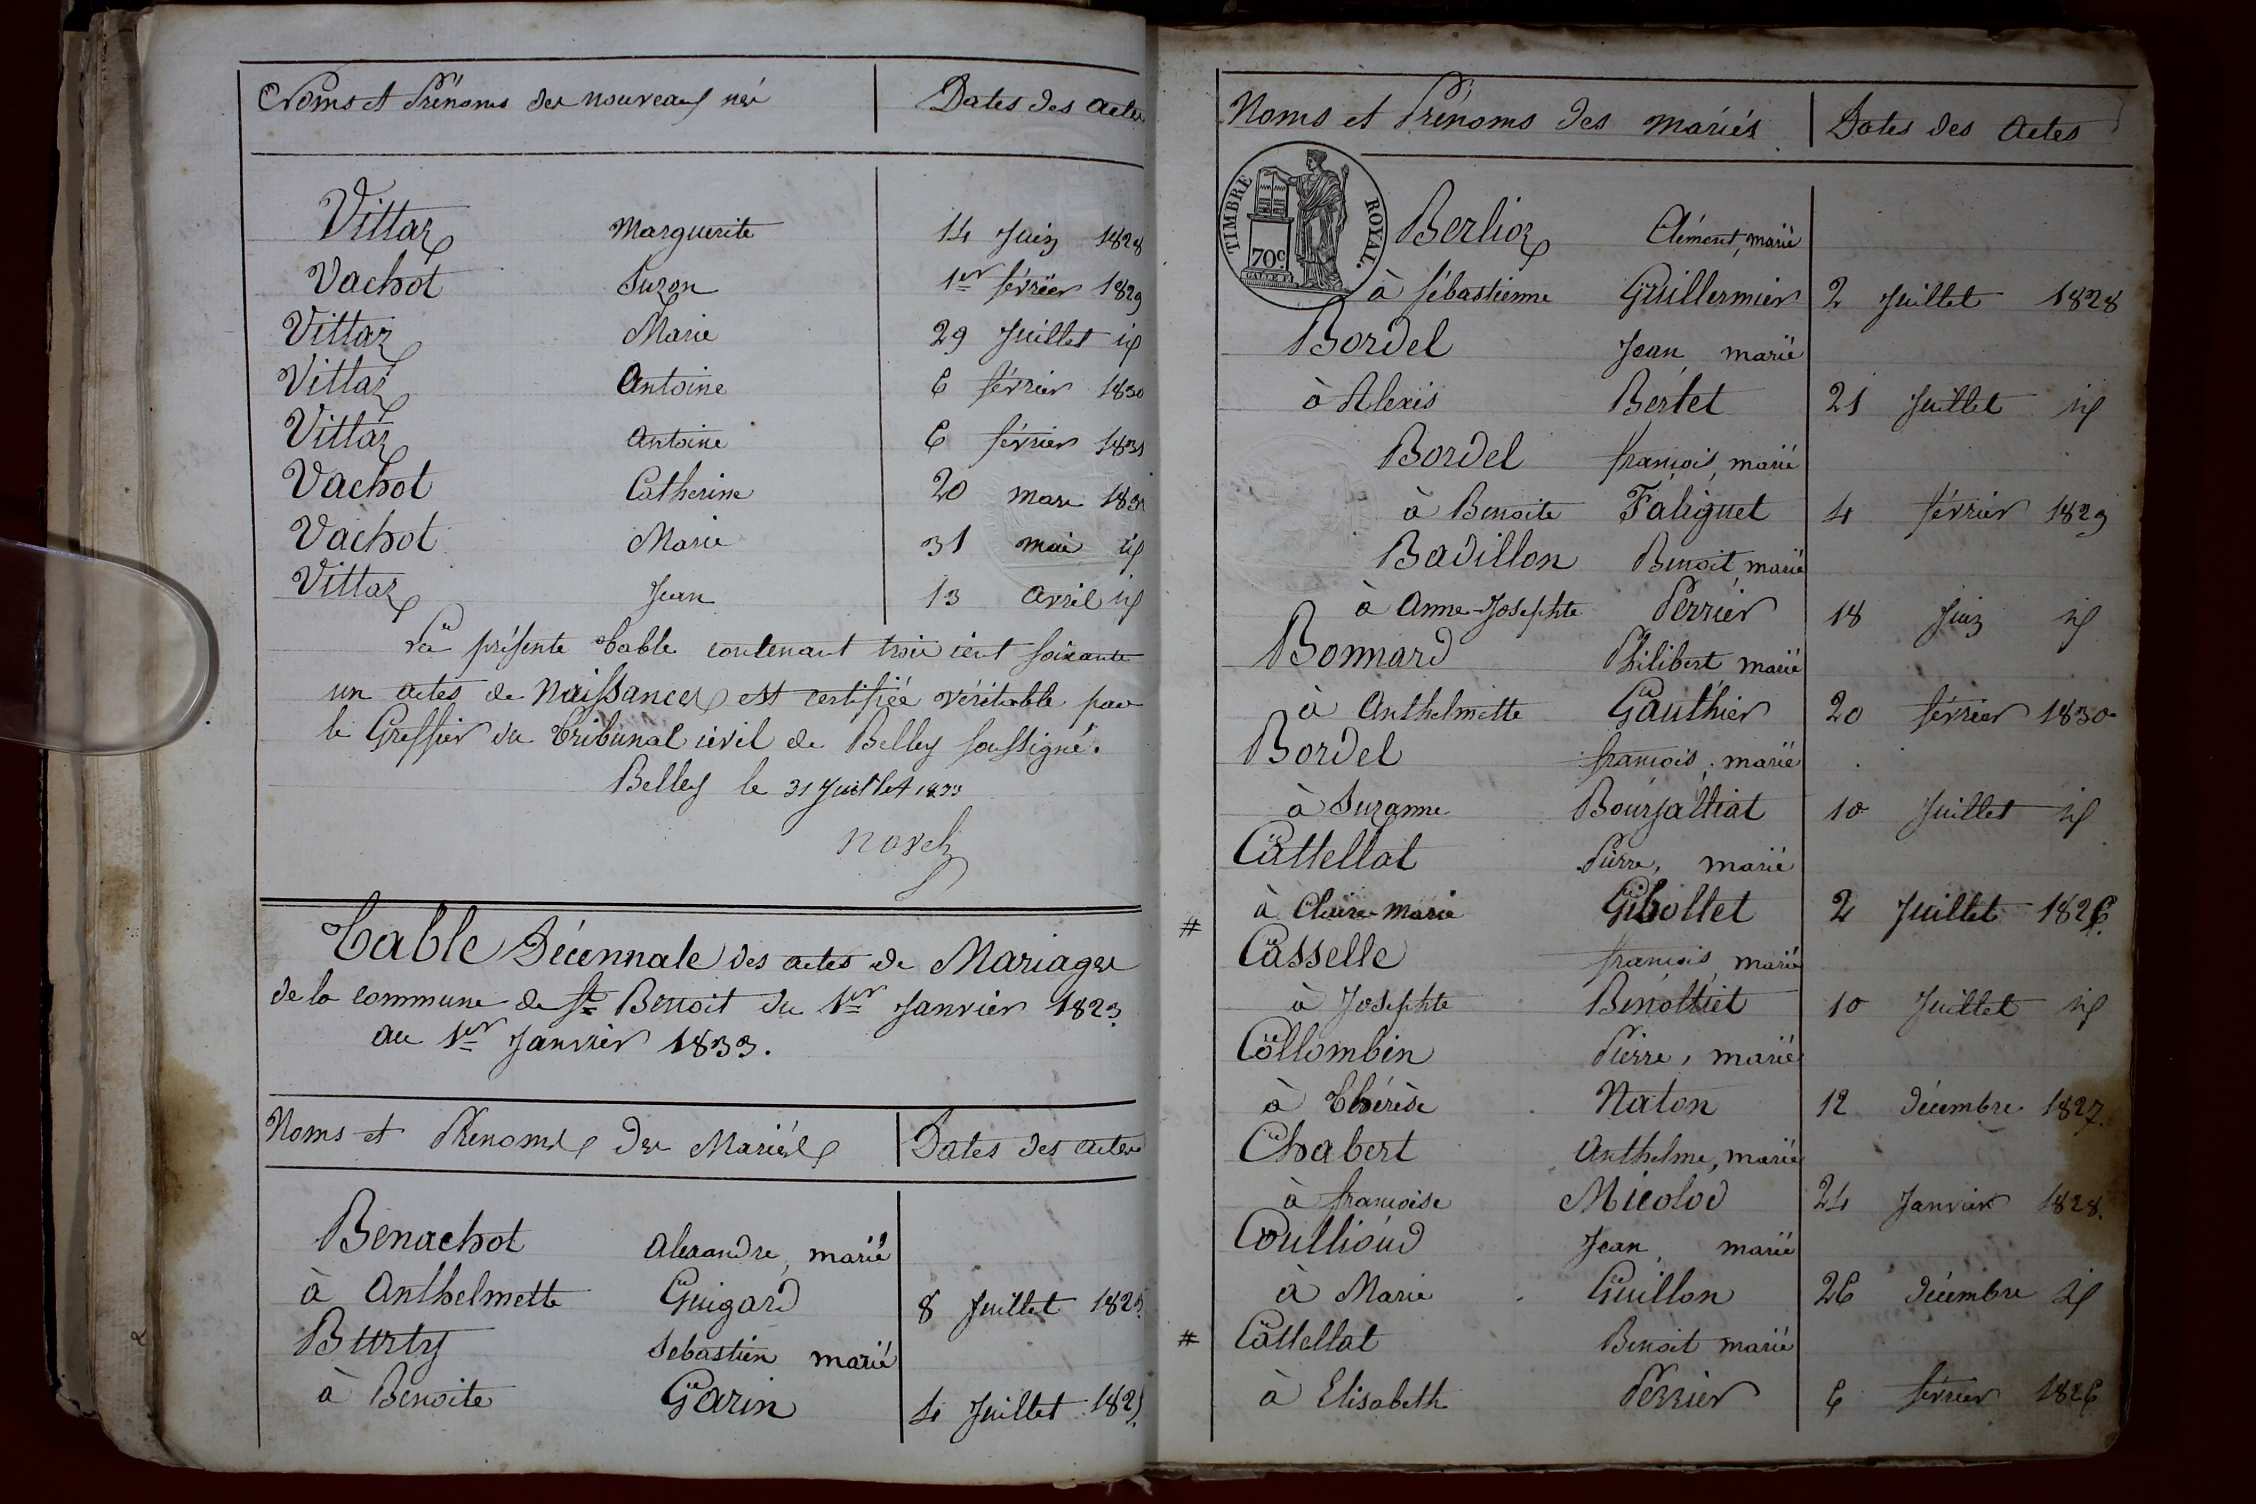 Noms et Prénoms des nouveaux nés Dates des actes
Vittaz Marguerite 14 Juin 1828
Vachot Suzon 1er février 1829
Vittaz Marie 29 Juillet id
Vittaz Antoine 6 février 1830
Vittaz Antoine 6 février 1831
Vachot Catherine 20 mars
Vachot Marie 31 mai id
Vittaz Jean 13 avril id
La présente table contenant trois cent soixante
un actes de Naissances est certifiée véritable par
le Greffier du Tribunal civil de Belley soussigné.
Belley le 31 Juillet 1833
Table Décennale des actes de Mariages
de la commune de St Benoit du 1er Janvier 1823
au 1er Janvier 1833.
Noms et Prénoms des Mariés Dates des actes
Benachot Alexandre, marié
à Anthelmette Guigard 8 Juillet
Burty Sebastien marié
à Benoite Garin 4 Juillet
Noms et Prénoms des mariés Dates des Actes
TIMBRE ROYAL.
70c
Berlioz Clément, marié
à Sébastienne Guillermier 2 Juillet 1828
Bordel Jean marié
à Alexis Bertet 21 Juillet id
Bordel françois, marié
à Benoite Faliguet 4 février 1829
Badillon Benoit marié
à Anne-Josephte Perrier 18 Juin id
Bonnard Philibert marié
à Anthelmette Gauthier 20 février 1830
Bordel françois, marié
à Suzanne Bourjailliat 10 Juillet id
Cattellat Pierre, marié
à Claire-Marie Gibollet 2 Juillet 1826.
# Casselle françois, marié
à Josephte Benottiet 10 Juillet id
Collombin Pierre, marié
à Thérèse Naton 12 décembre 1827.
Chabert Anthelme, marié
à françoise Micolod 24 Janvier 1828.
Coullioud Jean, marié
à Marie Guillon 26 décembre id
# Cattellat Benoit marié
à Elisabeth Perrier 6 février 1826